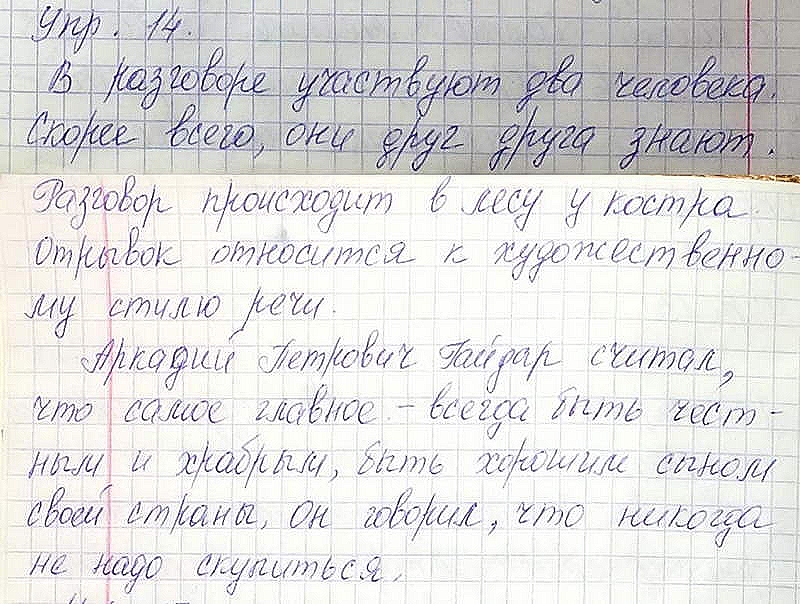 Упр. 14.
В разговоре участвуют два человека.
Скорее всего, они друг друга знают.
Разговор происходит в лесу у костра.
Отрывок относится к художественно-
му стилю речи.
Аркадий Петрович Гайдар считал,
что самое главное - всегда быть чест-
ным и храбрым, быть хорошим сыном
своей страны, он говорил, что никогда
не надо скупиться.